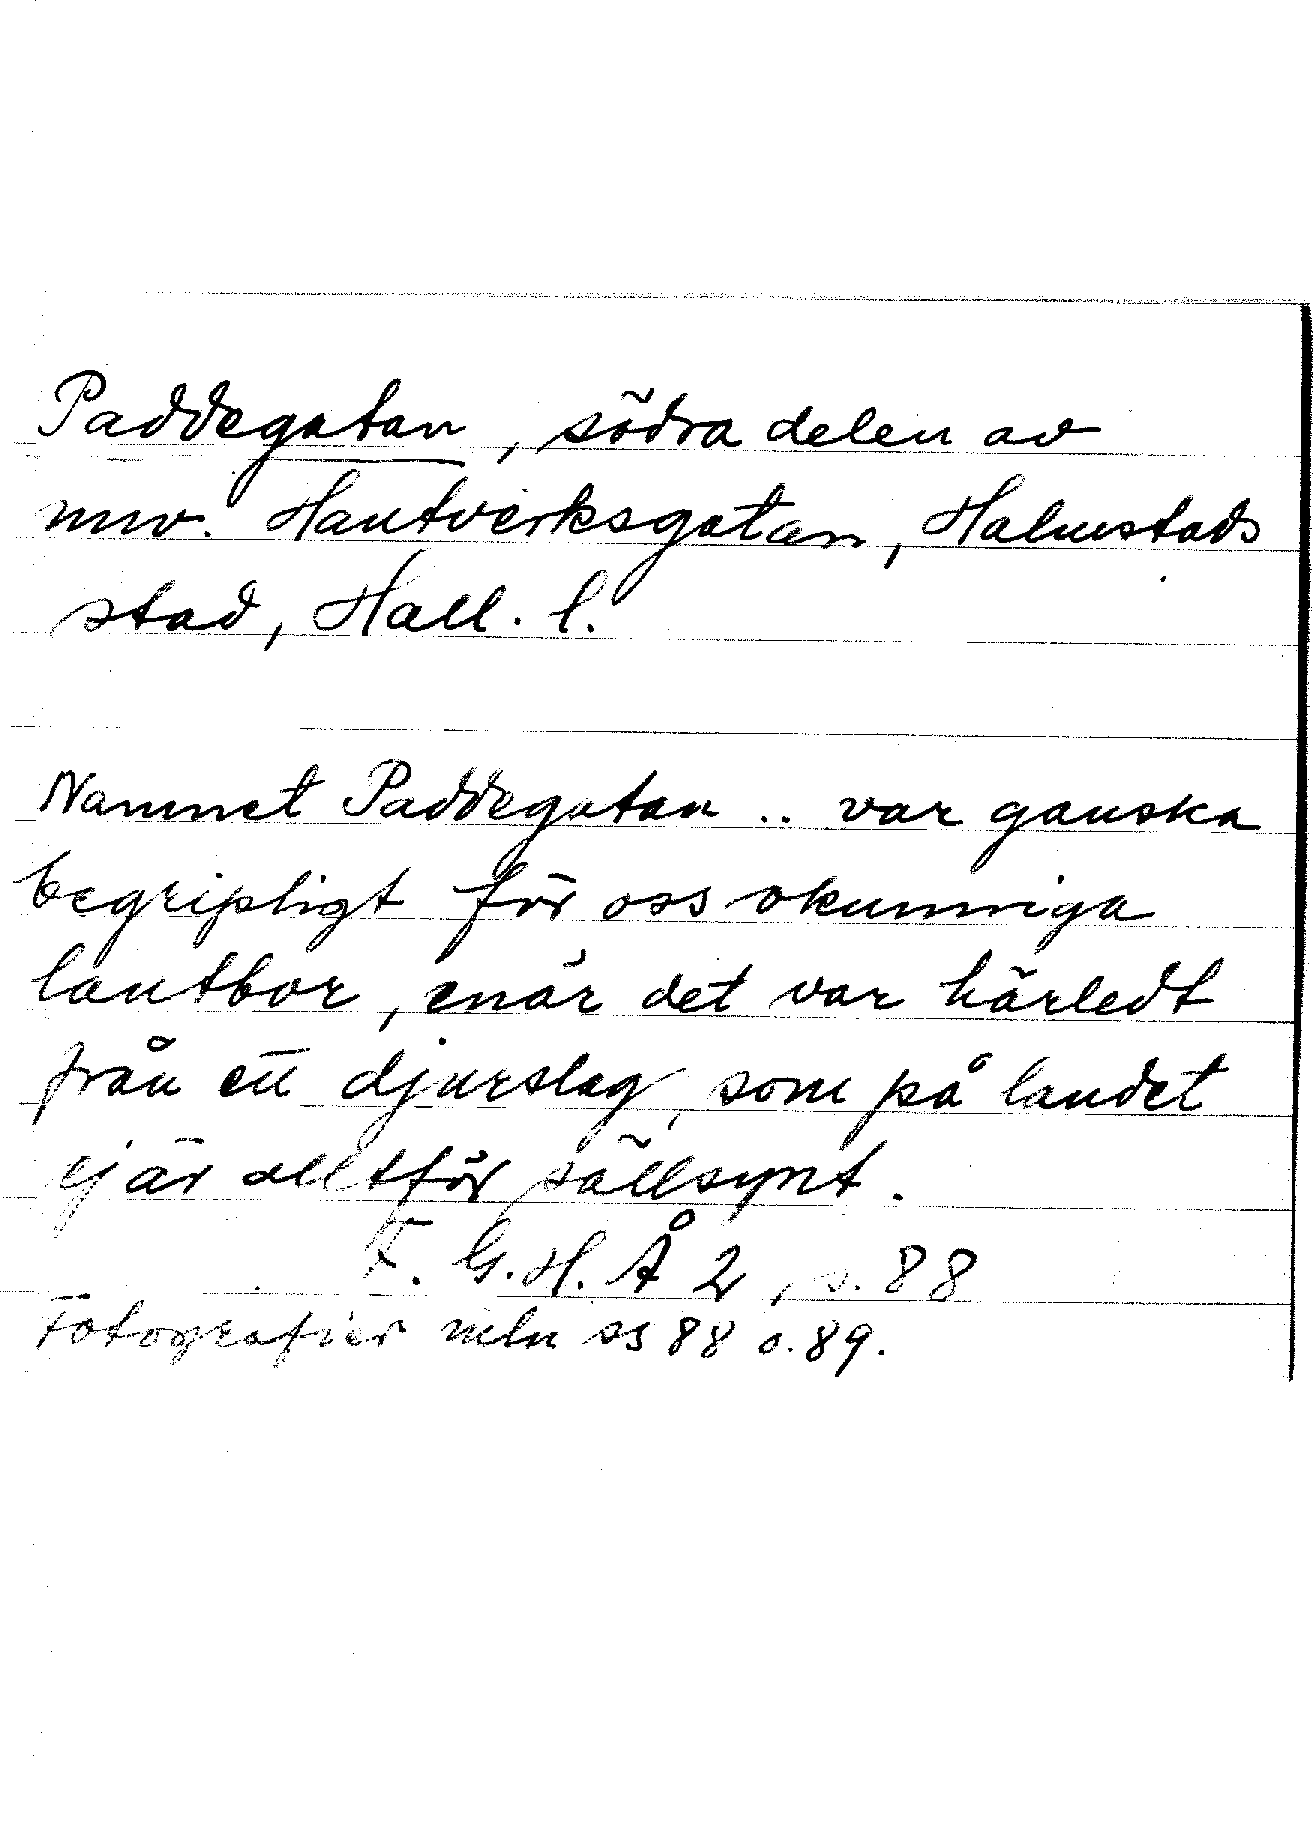 Paddegatan, södra delen av
nuv. Hantverksgatan, Halmstads
stad, Hall. l.
Namnet Paddegatan .. var ganska
begripligt för oss okunniga
lantbor, enär det var härledt
från ett djurslag, som på landet
ej är alltför sällsynt.
F. G. H. Å 2, s. 88
Fotografier mln ss 88 o. 89.